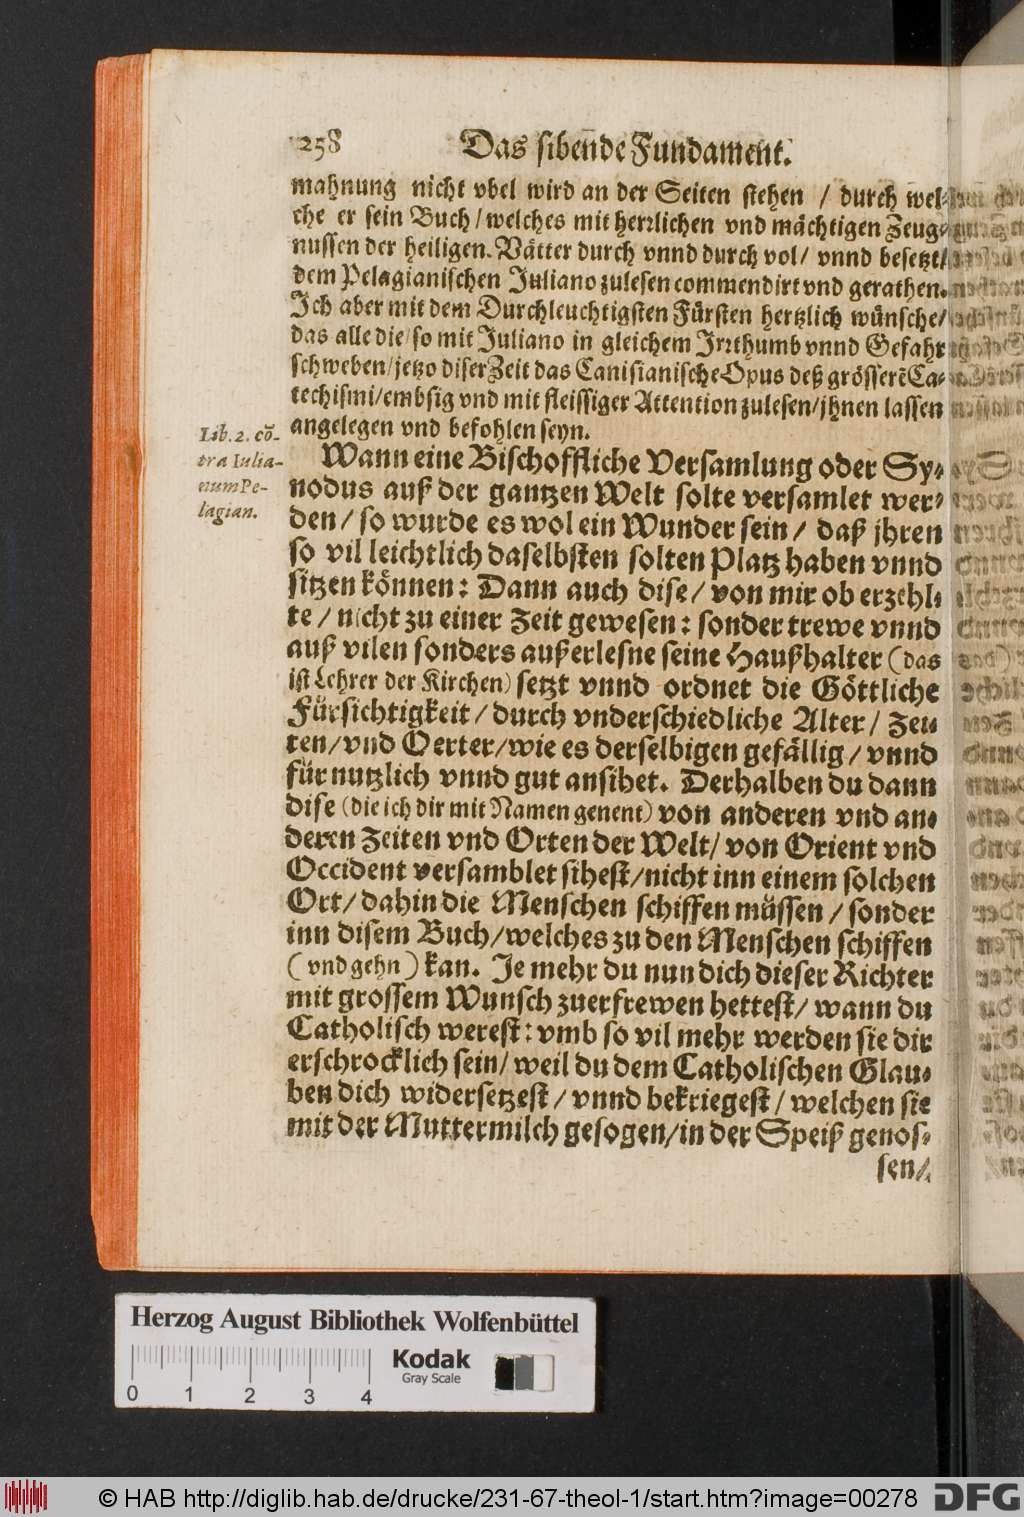 258 Das sibende Fundament.
mahnung nicht vbel wird an der Seiten stehen / durch wel-
che er sein Buch / welches mit herrlichen vnd mächtigen Zeug-
nussen der heiligen Vätter durch vnnd durch vol / vnnd besetzt /
dem Pelagianischen Juliano zulesen commendirt vnd gerathen.
Ich aber mit dem Durchleuchtigsten Fürsten hertzlich wünsche /
das alle die / so mit Juliano in gleichem Irrthumb vnnd Gefahr
schweben / jetzo diser Zeit das Canisianische Opus deß grösserē Ca-
techismi / embsig vnd mit fleissiger Attention zulesen / jhnen lassen
angelegen vnd befohlen seyn.
Lib. 2. cō-
tra Iulia-
num Pe-
lagian.
Wann eine Bischoffliche Versamlung oder Sy-
nodus auß der gantzen Welt solte versamlet wer-
den / so wurde es wol ein Wunder sein / daß jhren
so vil leichtlich daselbsten solten Platz haben vnnd
sitzen können: Dann auch dise / von mir ob erzehl-
te / nicht zu einer Zeit gewesen: sonder trewe vnnd
auß vilen sonders außerlesne seine Haußhalter (das
ist Lehrer der Kirchen) setzt vnnd ordnet die Göttliche
Fürsichtigkeit / durch vnderschiedliche Alter / Zeu
ten / vnd Oerter / wie es derselbigen gefällig / vnnd
für nutzlich vnnd gut ansihet. Derhalben du dann
dise (die ich dir mit Namen genent) von anderen vnd an-
deren Zeiten vnd Orten der Welt / von Orient vnd
Occident versamblet sihest / nicht inn einem solchen
Ort / dahin die Menschen schiffen müssen / sonder
inn disem Buch / welches zu den Menschen schiffen
(vnd gehn) kan. Je mehr du nun dich dieser Richter
mit grossem Wunsch zuerfrewen hettest / wann du
Catholisch werest: vmb so vil mehr werden sie dir
erschrocklich sein / weil du dem Catholischen Glau-
ben dich widersetzest / vnnd bekriegest / welchen sie
mit der Muttermilch gesogen / in der Speiß genos-
sen /
Herzog August Bibliothek Wolfenbüttel
Kodak
Gray Scale
0 1 2 3 4
© HAB http://diglib.hab.de/drucke/231-67-theol-1/start.htm?image=00278
DFG